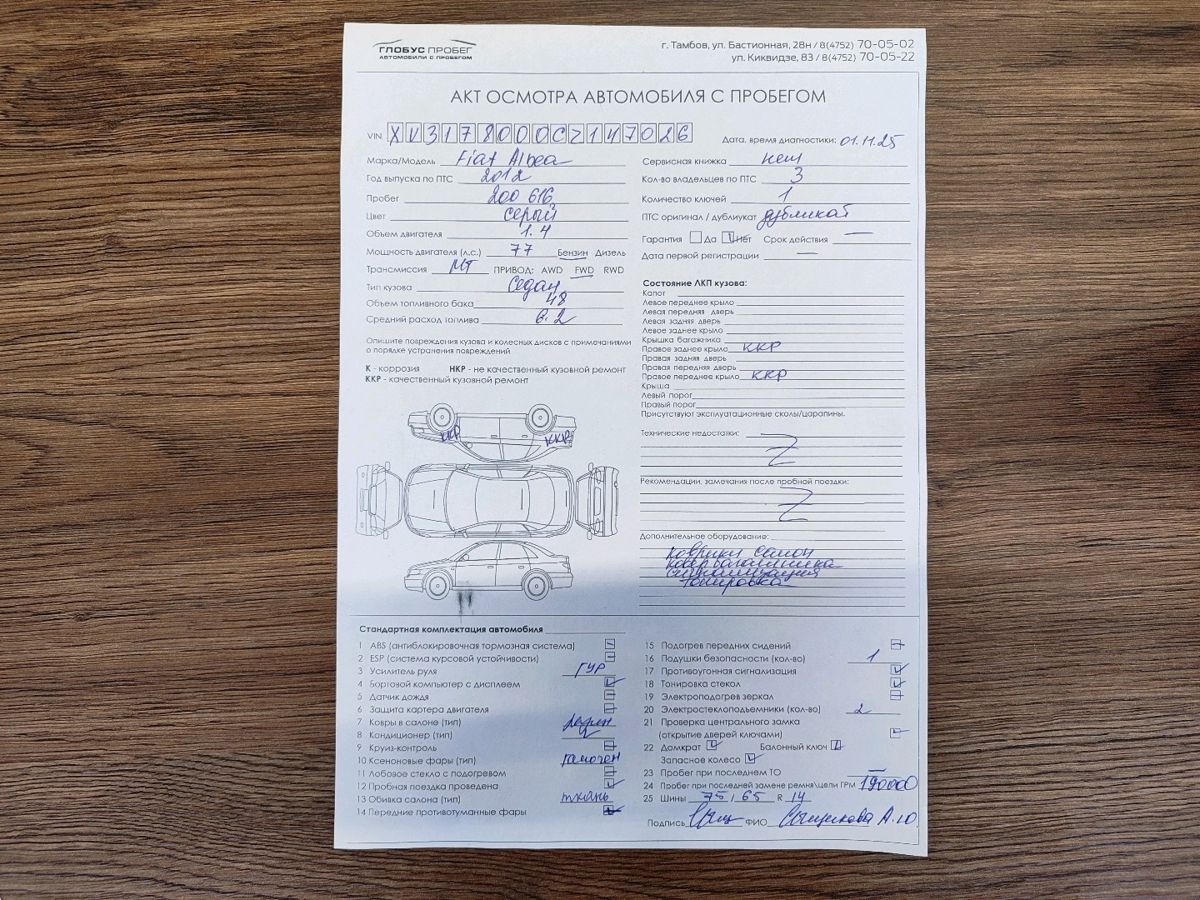 ГЛОБУС ПРОБЕГ
АВТОМОБИЛИ С ПРОБЕГОМ
г. Тамбов, ул. Бастионная, 28н / 8(4752) 70-05-02
ул. Киквидзе, 83 / 8(4752) 70-05-22
АКТ ОСМОТРА АВТОМОБИЛЯ С ПРОБЕГОМ
VIN XU3178000CZ147026
Дата, время диагностики: 01.11.25
Марка/Модель Fiat Albea
Год выпуска по ПТС 2012
Пробег 200 616
Цвет серый
Объем двигателя 1.4
Мощность двигателя (л.с.) 77 Бензин Дизель
Трансмиссия МТ ПРИВОД: AWD FWD RWD
Тип кузова Седан
Объем топливного бака 48
Средний расход топлива 6.2
Опишите повреждения кузова и колесных дисков с примечаниями
о порядке устранения повреждений
К - коррозия НКР - не качественный кузовной ремонт
ККР - качественный кузовной ремонт
ККР ККР
Сервисная книжка нет
Кол-во владельцев по ПТС 3
Количество ключей 1
ПТС оригинал / дубликат дубликат
Гарантия Да Нет Срок действия —
Дата первой регистрации —
Состояние ЛКП кузова:
Капот
Левое переднее крыло
Левая передняя дверь
Левая задняя дверь
Левое заднее крыло
Крышка багажника
Правое заднее крыло ККР
Правая задняя дверь
Правая передняя дверь
Правое переднее крыло ККР
Крыша
Левый порог
Правый порог
Присутствуют эксплуатационные сколы/царапины.
Технические недостатки:
Рекомендации, замечания после пробной поездки:
Дополнительное оборудование:
коврики салон
ковер багажника
сигнализация
тонировка
Стандартная комплектация автомобиля
1 ABS (антиблокировочная тормозная система)
2 ESP (система курсовой устойчивости)
3 Усилитель руля ГУР
4 Бортовой компьютер с дисплеем
5 Датчик дождя
6 Защита картера двигателя
7 Ковры в салоне (тип)
8 Кондиционер (тип)
9 Круиз-контроль
10 Ксеноновые фары (тип) галоген
11 Лобовое стекло с подогревом
12 Пробная поездка проведена
13 Обивка салона (тип) ткань
14 Передние противотуманные фары
15 Подогрев передних сидений
16 Подушки безопасности (кол-во) 1
17 Противоугонная сигнализация
18 Тонировка стекол
19 Электроподогрев зеркал
20 Электростеклоподъемники (кол-во) 2
21 Проверка центрального замка
(открытие дверей ключами)
22 Домкрат Балонный ключ
Запасное колесо
23 Пробег при последнем ТО —
24 Пробег при последней замене ремня\цепи ГРМ 190000
25 Шины 75 / 65 R 14
Подпись ФИО